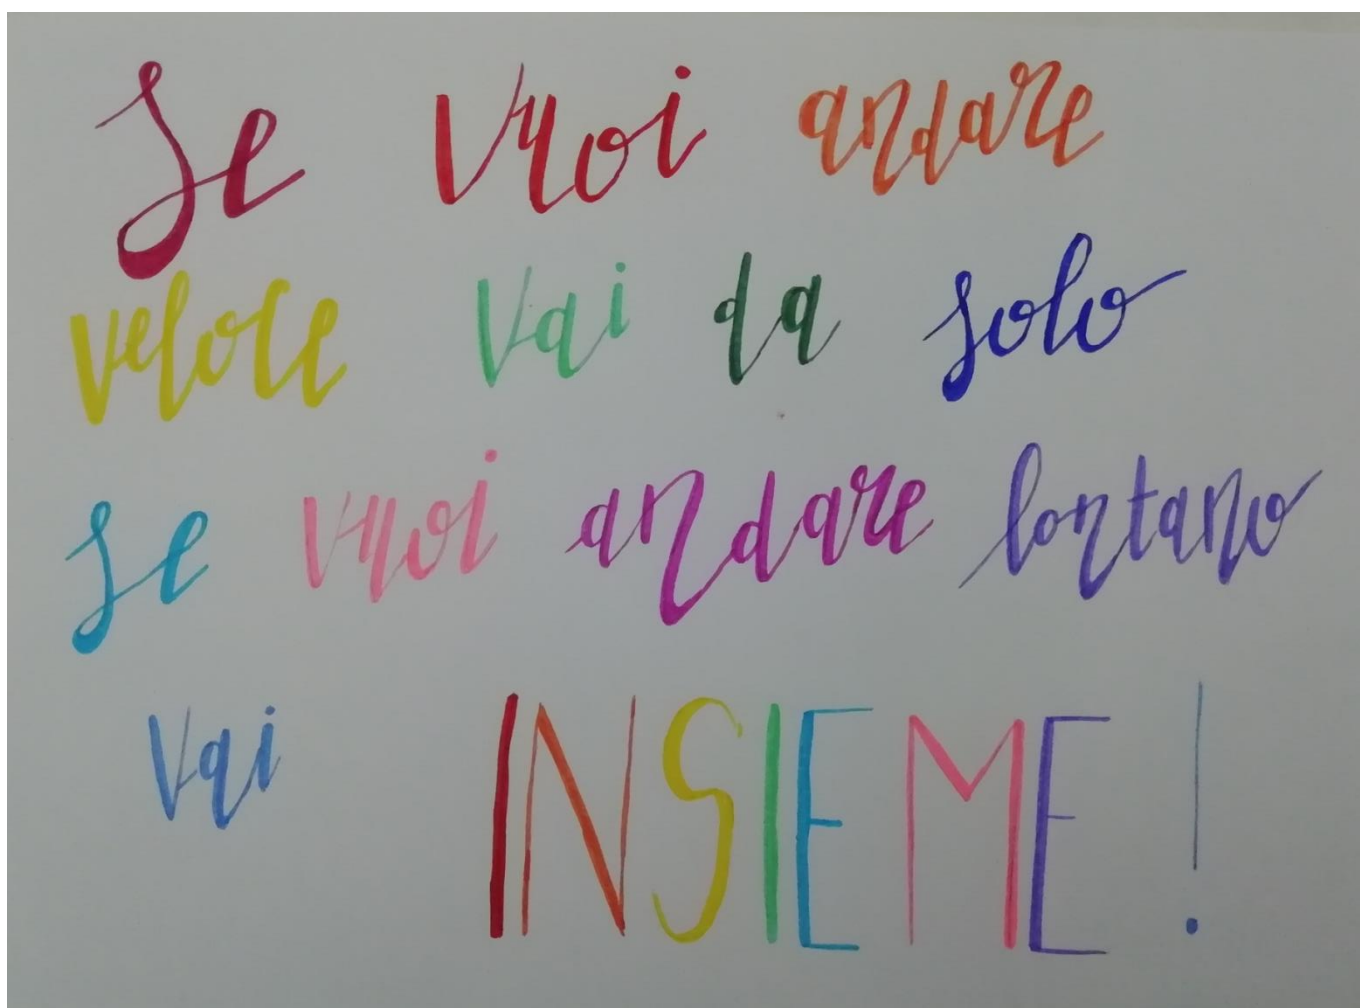 Se vuoi andare
veloce vai da solo
Se vuoi andare lontano
vai INSIEME!